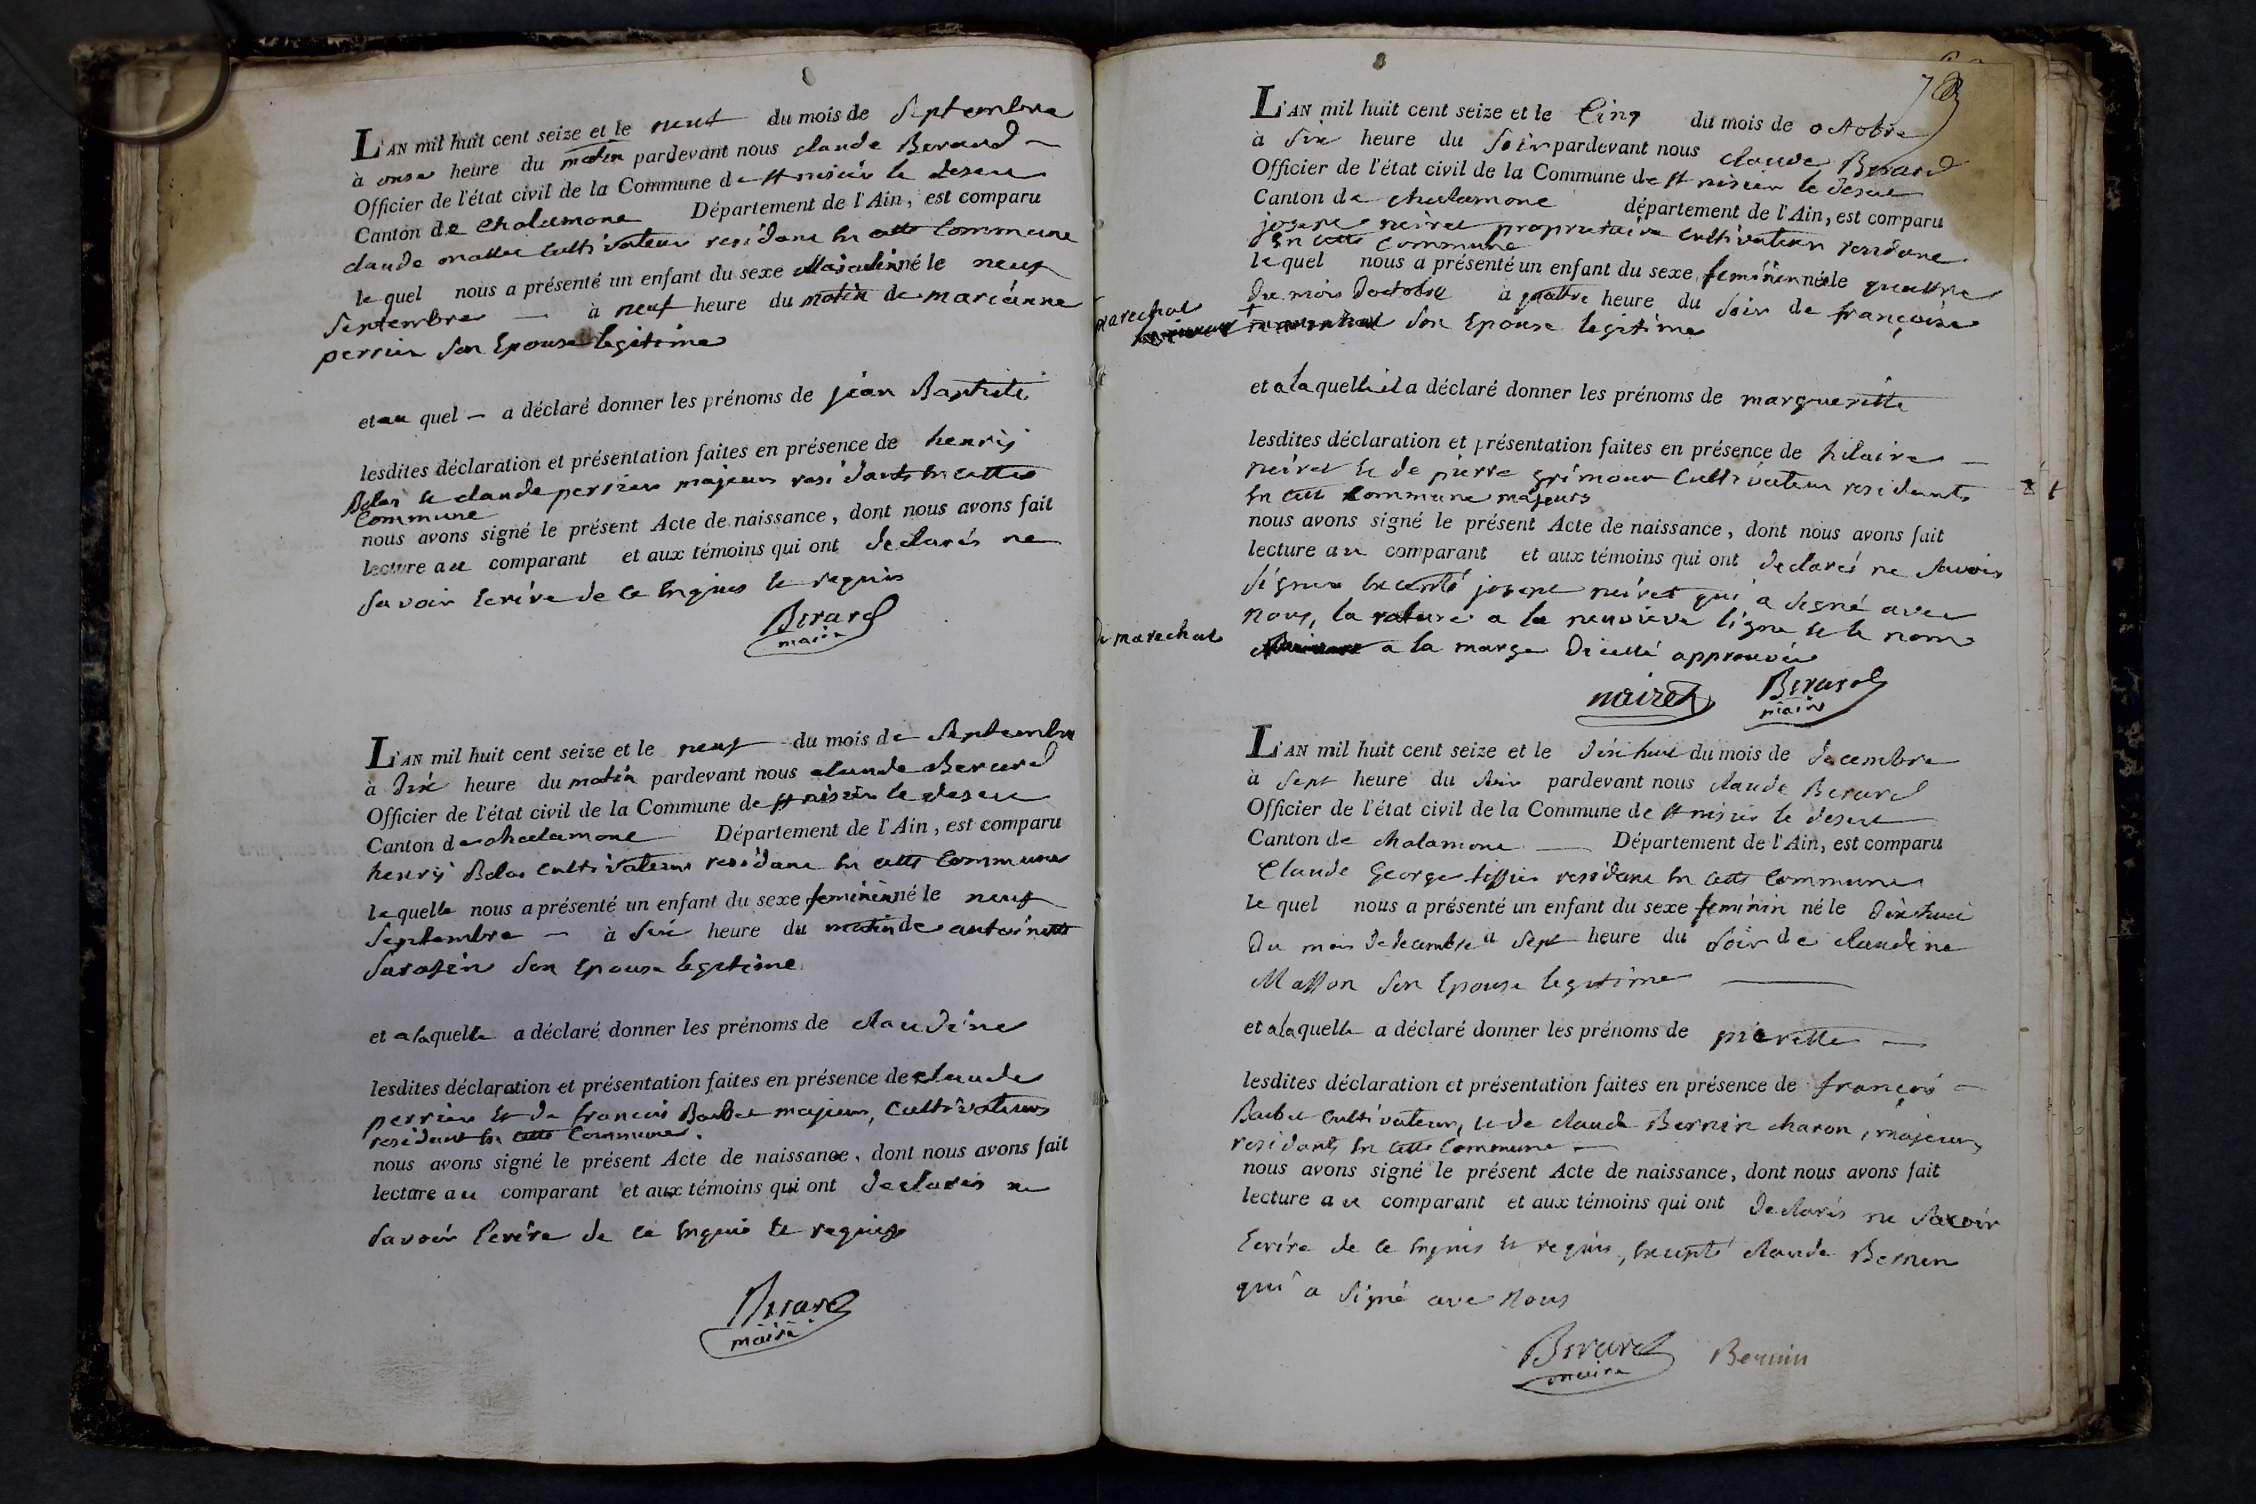 L'AN mil huit cent seize et le neuf du mois de Septembre
à onse heure du matin pardevant nous claude Berard
Officier de l'état civil de la Commune de st nisier le desert
Canton de Chalamont Département de l'Ain, est comparu
claude cultivateur residant en cette Commune
le quel nous a présenté un enfant du sexe Masculin né le neuf
Septembre — à neuf heure du matin de marianne
perrier son Epouse legitime
et au quel — a déclaré donner les prénoms de jean Baptiste
lesdites déclaration et présentation faites en présence de henrij
Bolas et claude perrier majeurs residants en cette
Commune
nous avons signé le présent Acte de naissance, dont nous avons fait
lecture au comparant et aux témoins qui ont declarés ne
savoir Ecrire de ce Enquis et requis
Berard
maire
L'AN mil huit cent seize et le neuf du mois de Septembre
à dix heure du matin pardevant nous claude Berard
Officier de l'état civil de la Commune de st nisier le desert
Canton de chalamont Département de l'Ain, est comparu
henrij Bolas cultivateur residant en cette Commune
le quelle nous a présenté un enfant du sexe feminin né le neuf
Septembre — à six heure du matin de antoinette
Sarasin son Epouse legitime
et a laquelle a déclaré donner les prénoms de claudine
lesdites déclaration et présentation faites en présence de claude
perrier et de francois Barbet majeurs, cultivateurs
residant en cette Commune.
nous avons signé le présent Acte de naissance, dont nous avons fait
lecture au comparant et aux témoins qui ont declarés ne
savoir Ecrire de ce Enquis et requis
Berard
maire
L'AN mil huit cent seize et le Cinq du mois de octobre
à Six heure du Soir pardevant nous claude Berard
Officier de l'état civil de la Commune de st nisier le desert
Canton de chalamont département de l'Ain, est comparu
joseph neiret propriétaire cultivateur residant
En cette Commune
le quel nous a présenté un enfant du sexe feminin née le quattre
du mois doctobre à quattre heure du soir de françoise
marechal
son Epouse legitime
et a la quelle il a déclaré donner les prénoms de margueritte
lesdites déclaration et présentation faites en présence de hilaire
neiret et de pierre grimour cultivateur residants
En cette Commune majeurs
nous avons signé le présent Acte de naissance, dont nous avons fait
lecture au comparant et aux témoins qui ont declarés ne Savoir
signer Excepté joseph neiret qui a signé avec
nous, la rature a la neuvieve ligne et le nom
de marechal
a la marge dicelle approuvée
neiret Berard
maire
L'AN mil huit cent seize et le dix huit du mois de decembre
à Sept heure du Soir pardevant nous claude Berard
Officier de l'état civil de la Commune de st nisier le desert
Canton de chalamont — Département de l'Ain, est comparu
Claude George tissier residant En cette Commune
le quel nous a présenté un enfant du sexe feminin né le dix huit
du mois de decembre a Sept heure du Soir de claudine
Masson son Epouse legitime
et a laquelle a déclaré donner les prénoms de pierette —
lesdites déclaration et présentation faites en présence de françois
Barbet cultivateur, et de claude Bernin charon, majeurs
residants En cette Commune —
nous avons signé le présent Acte de naissance, dont nous avons fait
lecture au comparant et aux témoins qui ont declarés ne Savoir
Ecrire de ce Enquis et requis, Excepté claude Bernin
qui a signé avec Nous
Berard Bernin
maire